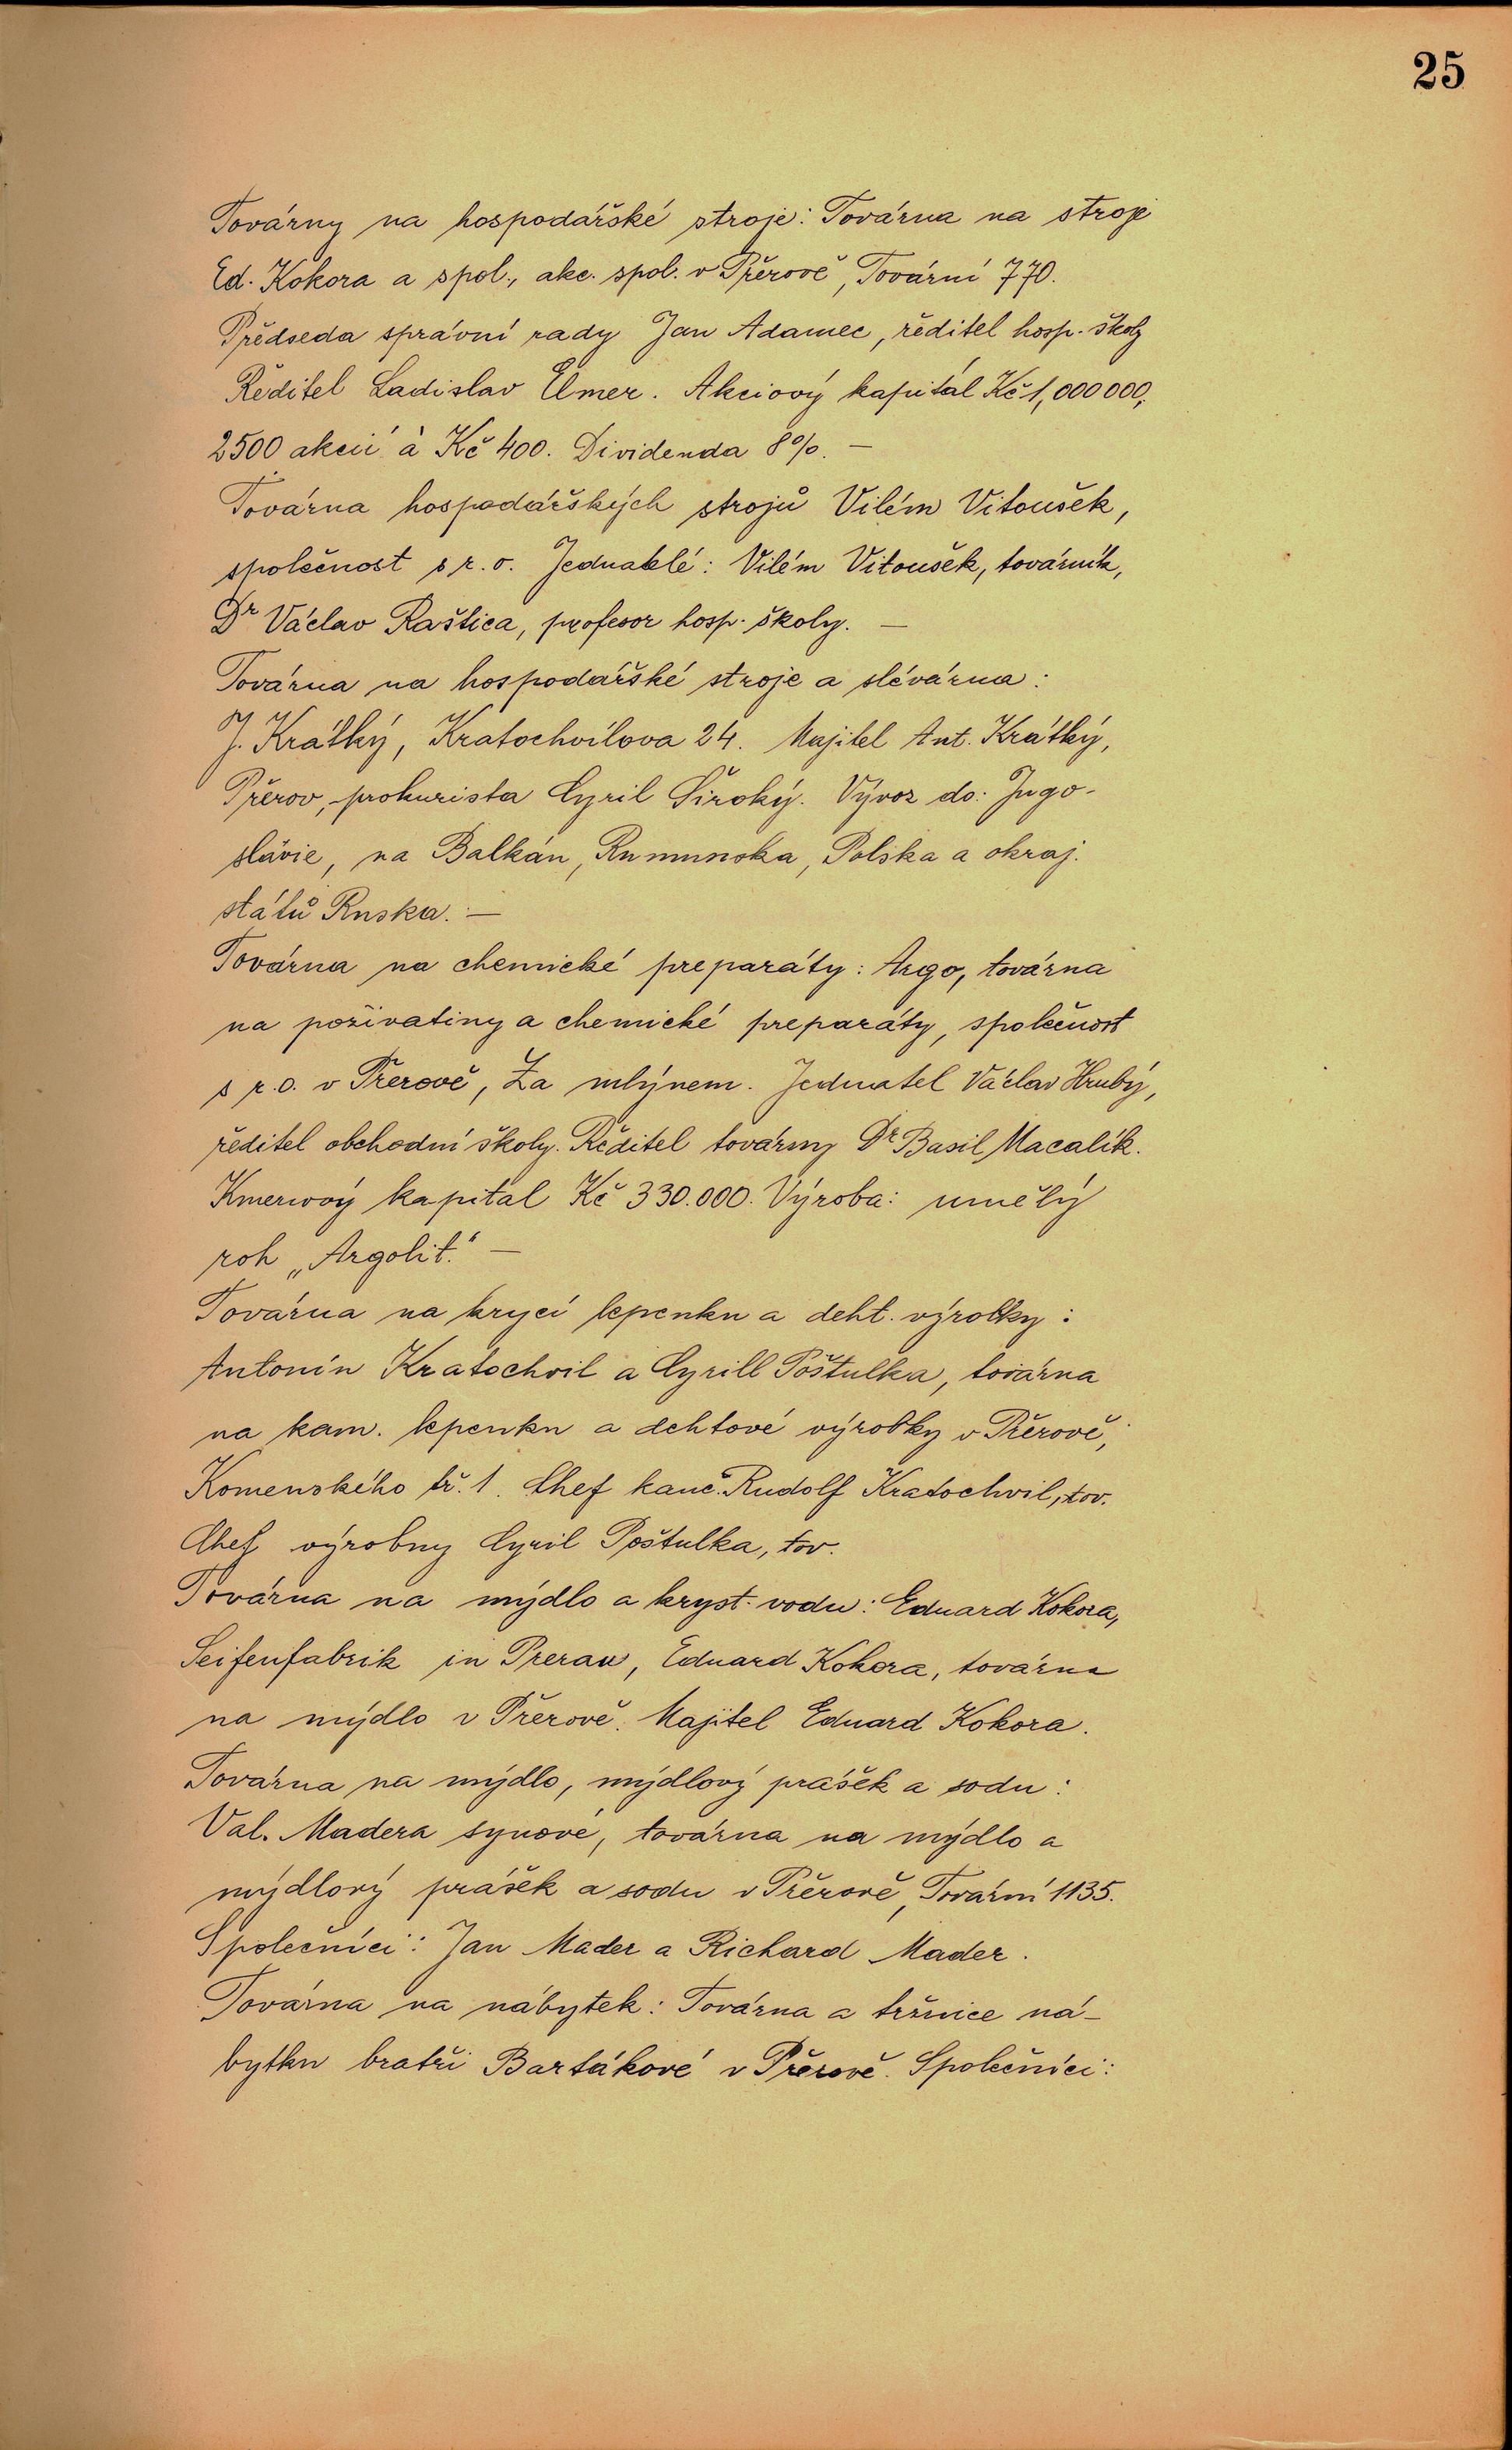 25
Továrny na hospodářské stroje: Továrna na stroje
Ed. Kokora a spol., akc. spol. v Přerově, Tovární 770.
Předseda správní rady Jan Adamec, ředitel hosp. školy
Ředitel Ladislav Elmer. Akciový kapitál Kč 1,000 000,
2500 akcií à Kč 400. Dividenda 8%. —
Továrna hospodářských strojů Vilém Vitoušek,
společnost s r. o. Jednatelé: Vilém Vitoušek, továrník,
Dr Václav Raštica, profesor hosp. školy. —
Továrna na hospodářské stroje a slévárna:
J. Krátký, Kratochvílova 24. Majitel Ant. Krátký,
Přerov, prokurista Cyril Široký. Vývoz do: Jugo-
slávie, na Balkán, Rumunska, Polska a okraj.
států Ruska. —
Továrna na chemické preparáty: Argo, továrna
na poživatiny a chemické preparáty, společnost
s r.o. v Přerově, Za mlýnem. Jednatel Václav Hrubý,
ředitel obchodní školy. Ředitel továrny Dr Basil Macalík.
Kmenový kapitál Kč 330.000. Výroba: umělý
roh „Argolit." —
Továrna na krycí lepenku a deht. výrobky:
Antonín Kratochvil a Cyrill Poštulka, továrna
na kam. lepenku a dehtové výrobky v Přerově,
Komenského tř. 1. Chef kanc. Rudolf Kratochvil, tov.
Chef výrobny Cyril Poštulka, tov.
Továrna na mýdlo a kryst. vodu: Eduard Kokora,
Seifenfabrik in Prerau, Eduard Kokora, továrna
na mýdlo v Přerově. Majitel Eduard Kokora.
Továrna na mýdlo, mýdlový prášek a sodu:
Val. Madera synové, továrna na mýdlo a
mýdlový prášek a sodu v Přerově, Tovární 1135.
Společníci: Jan Mader a Richard Mader.
Továrna na nábytek: Továrna a tržnice ná-
bytku bratři Bartákové v Přerově. Společníci: